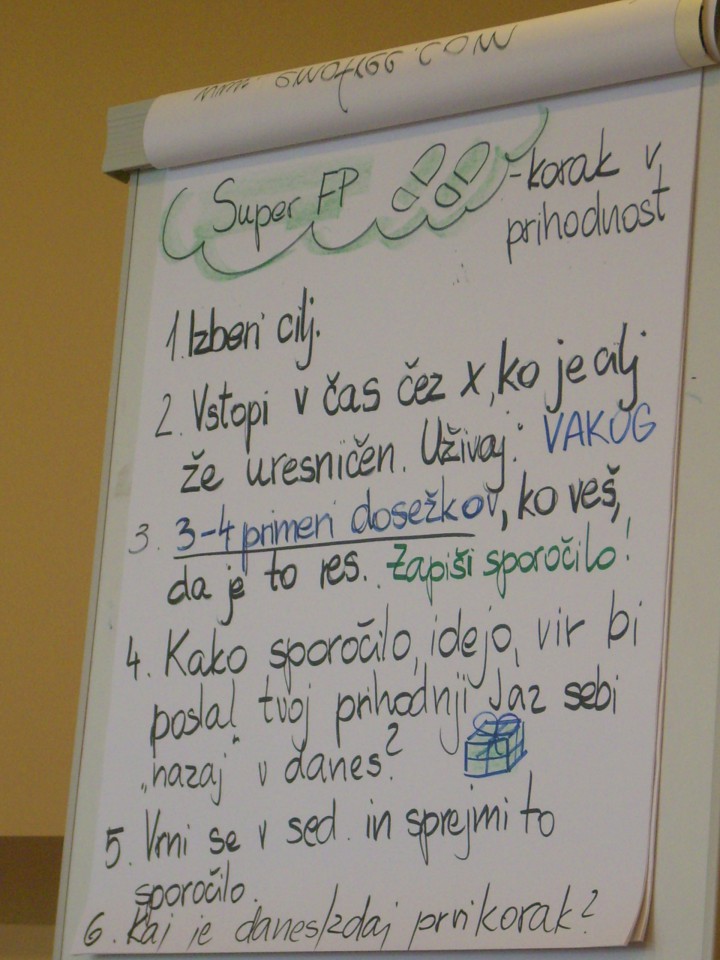 Super FP - korak v
prihodnost
1. Izberi cilj.
2. Vstopi v čas čez x, ko je cilj
že uresničen. Uživaj: VAKOG
3. 3-4 primeri dosežkov, ko veš,
da je to res. Zapiši sporočilo!
4. Kako sporočilo, idejo, vir bi
poslal tvoj prihodnji Jaz sebi
„nazaj" v danes?
5. Vrni se v sed. in sprejmi to
sporočilo.
6. Kaj je danes/zdaj prvi korak?